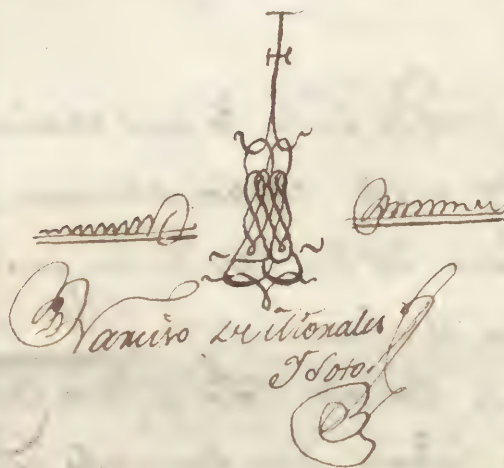 Narciso de Morales
Y Soto